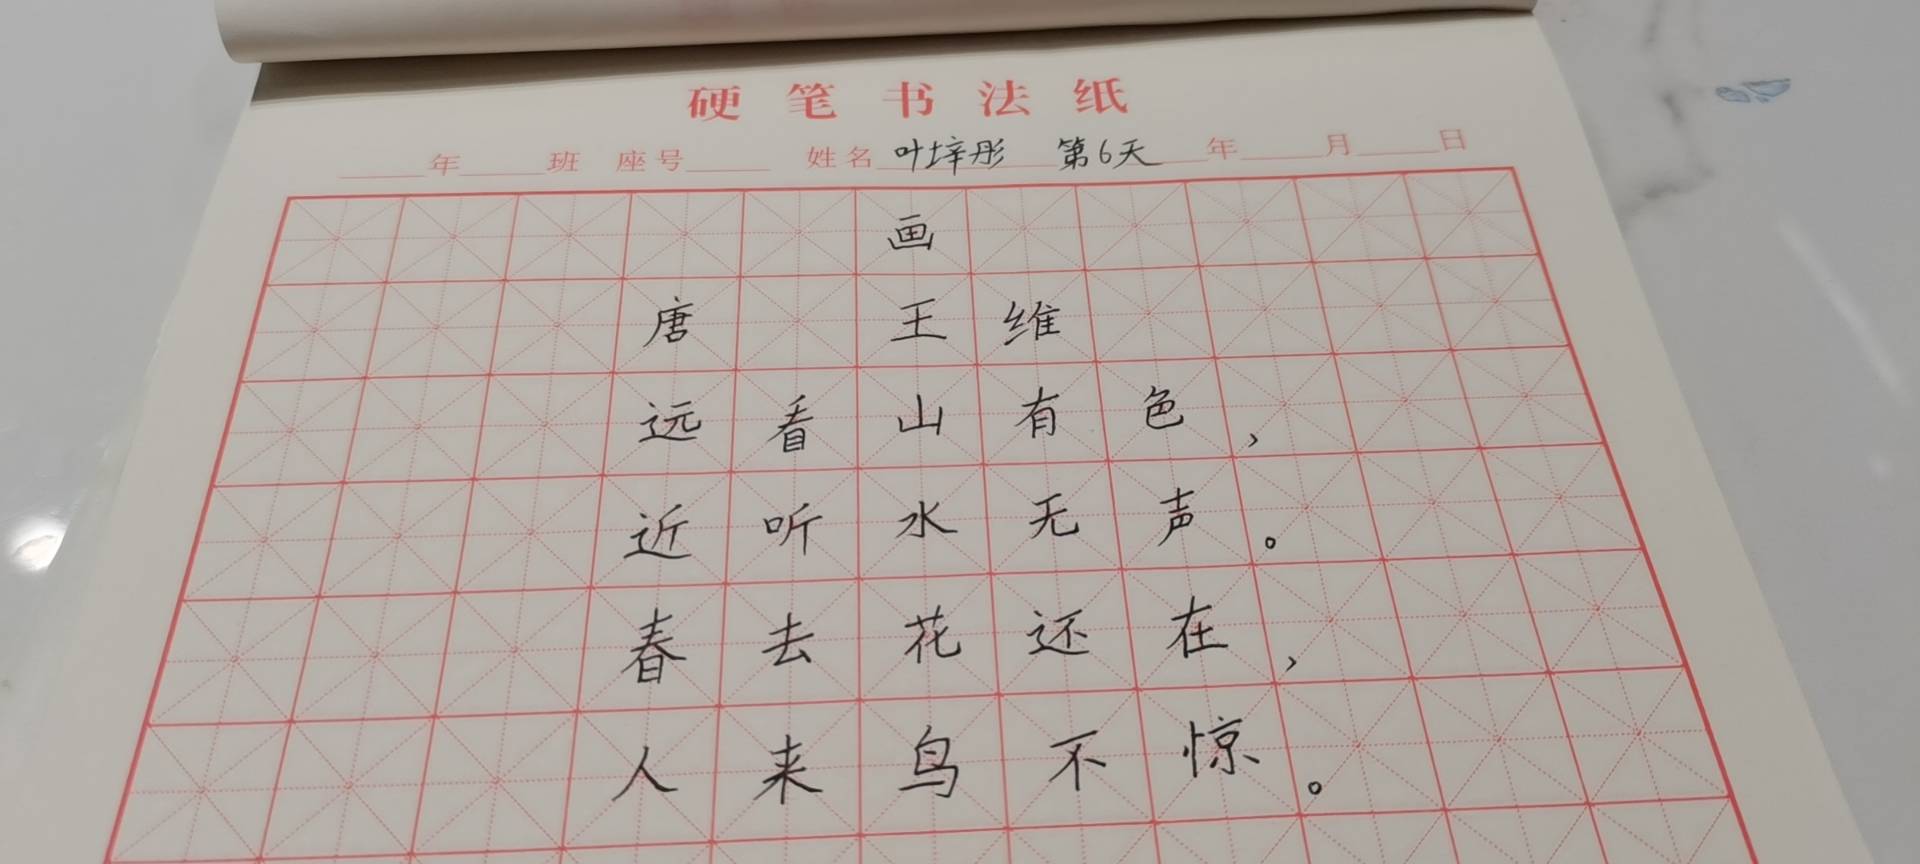 硬笔书法纸
年 班 座号 姓名 叶梓彤 第6天 年 月 日
画
唐 王维
远看山有色，
近听水无声。
春去花还在，
人来鸟不惊。